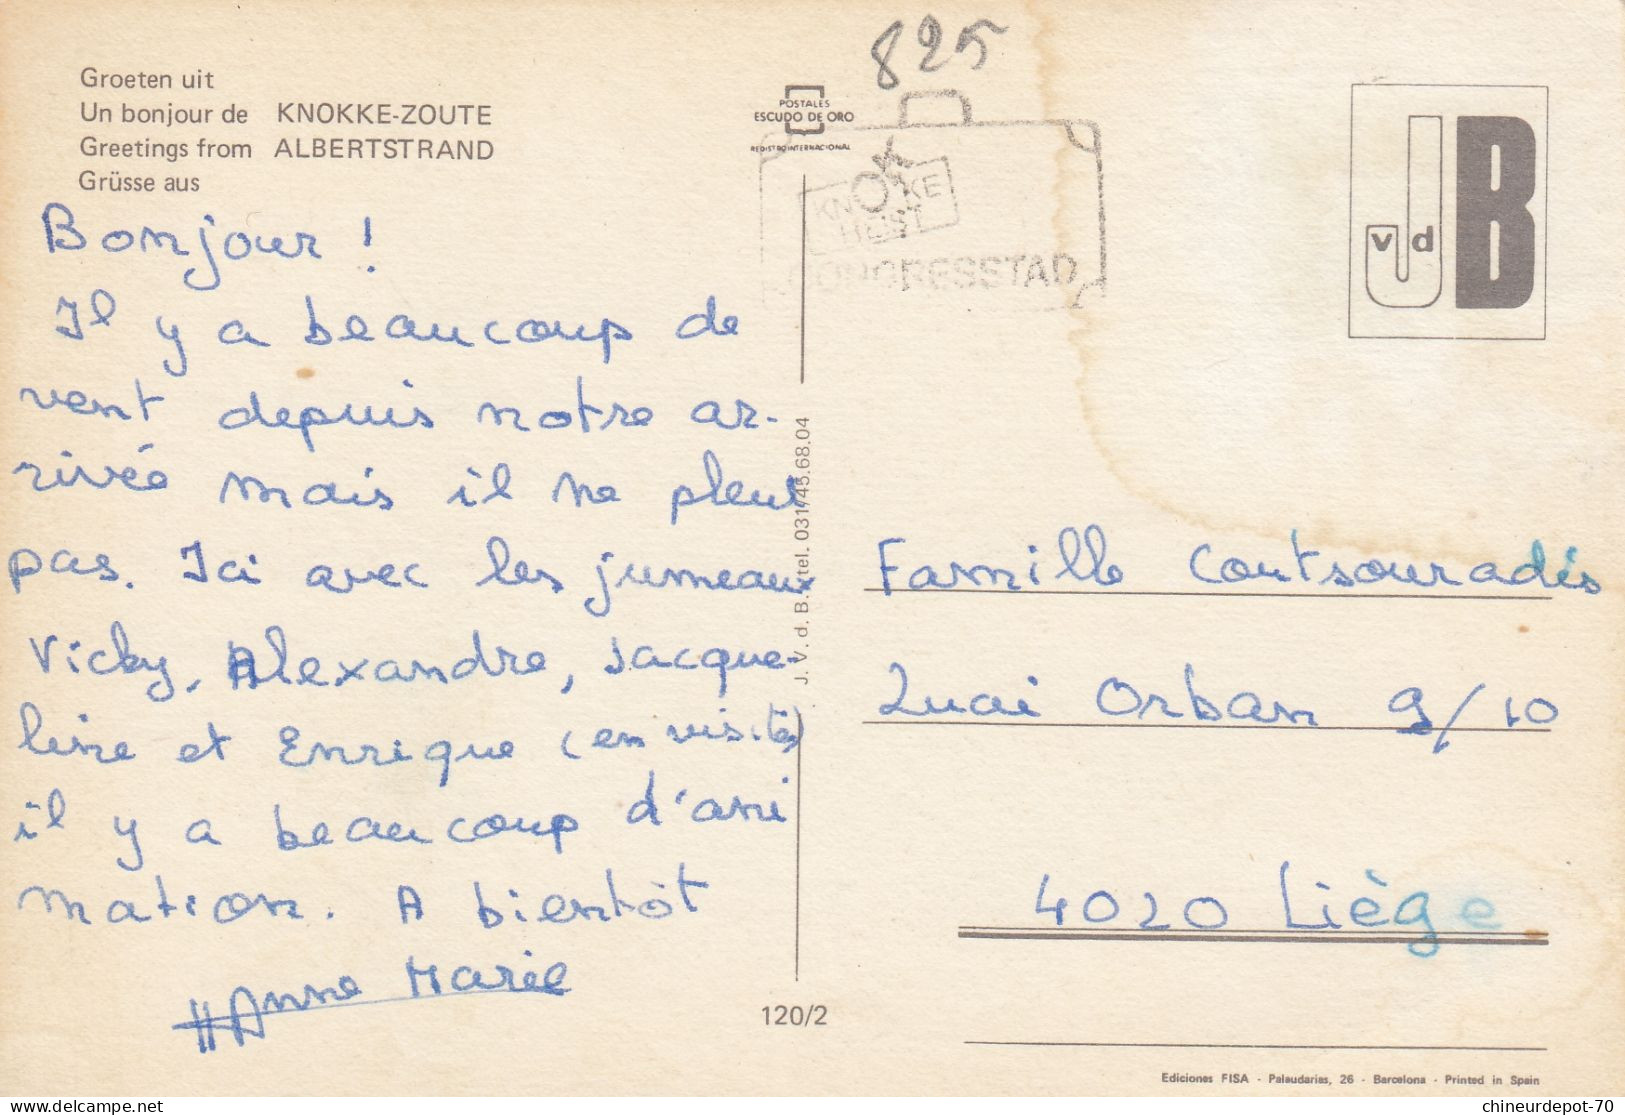 825
Groeten uit
Un bonjour de KNOKKE-ZOUTE
Greetings from ALBERTSTRAND
Grüsse aus
Bonjour !
Il y a beaucoup de
vent depuis notre ar-
rivée mais il ne pleut
pas. Ici avec les jumeaux
Vicky, Alexandre, Jacque-
line et Enrique (en visite)
il y a beaucoup d'ani
mation. A bientôt
Anne Marie
POSTALES
ESCUDO DE ORO
REGISTRO INTERNACIONAL
KNOKKE
HEIST
CONGRESSTAD
J. V. d. B. tel. 031/45.68.04
120/2
J v d B
Famille Coutsouradis
Quai Orban 9/10
4020 Liège
Ediciones FISA - Palaudarias, 26 - Barcelona - Printed in Spain
chineurdepot-70